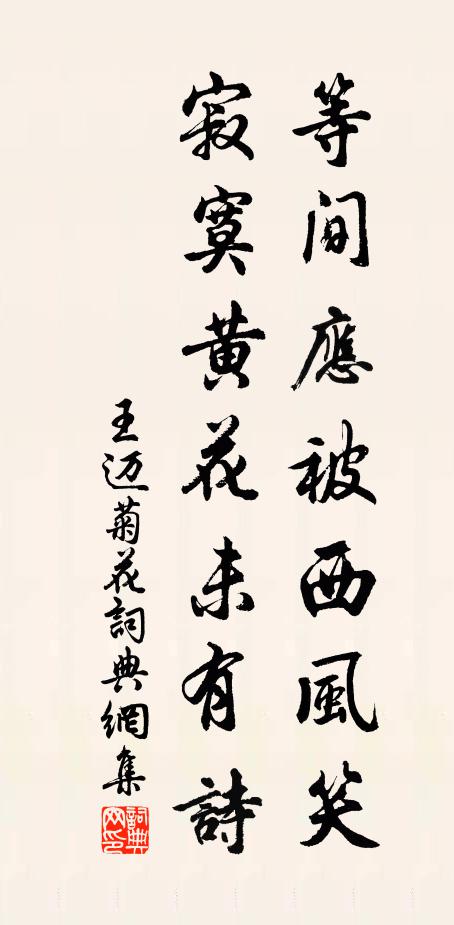 等間應被西風笑
寂寞黃花未有詩
王迈菊花詞典網集
詞典網印